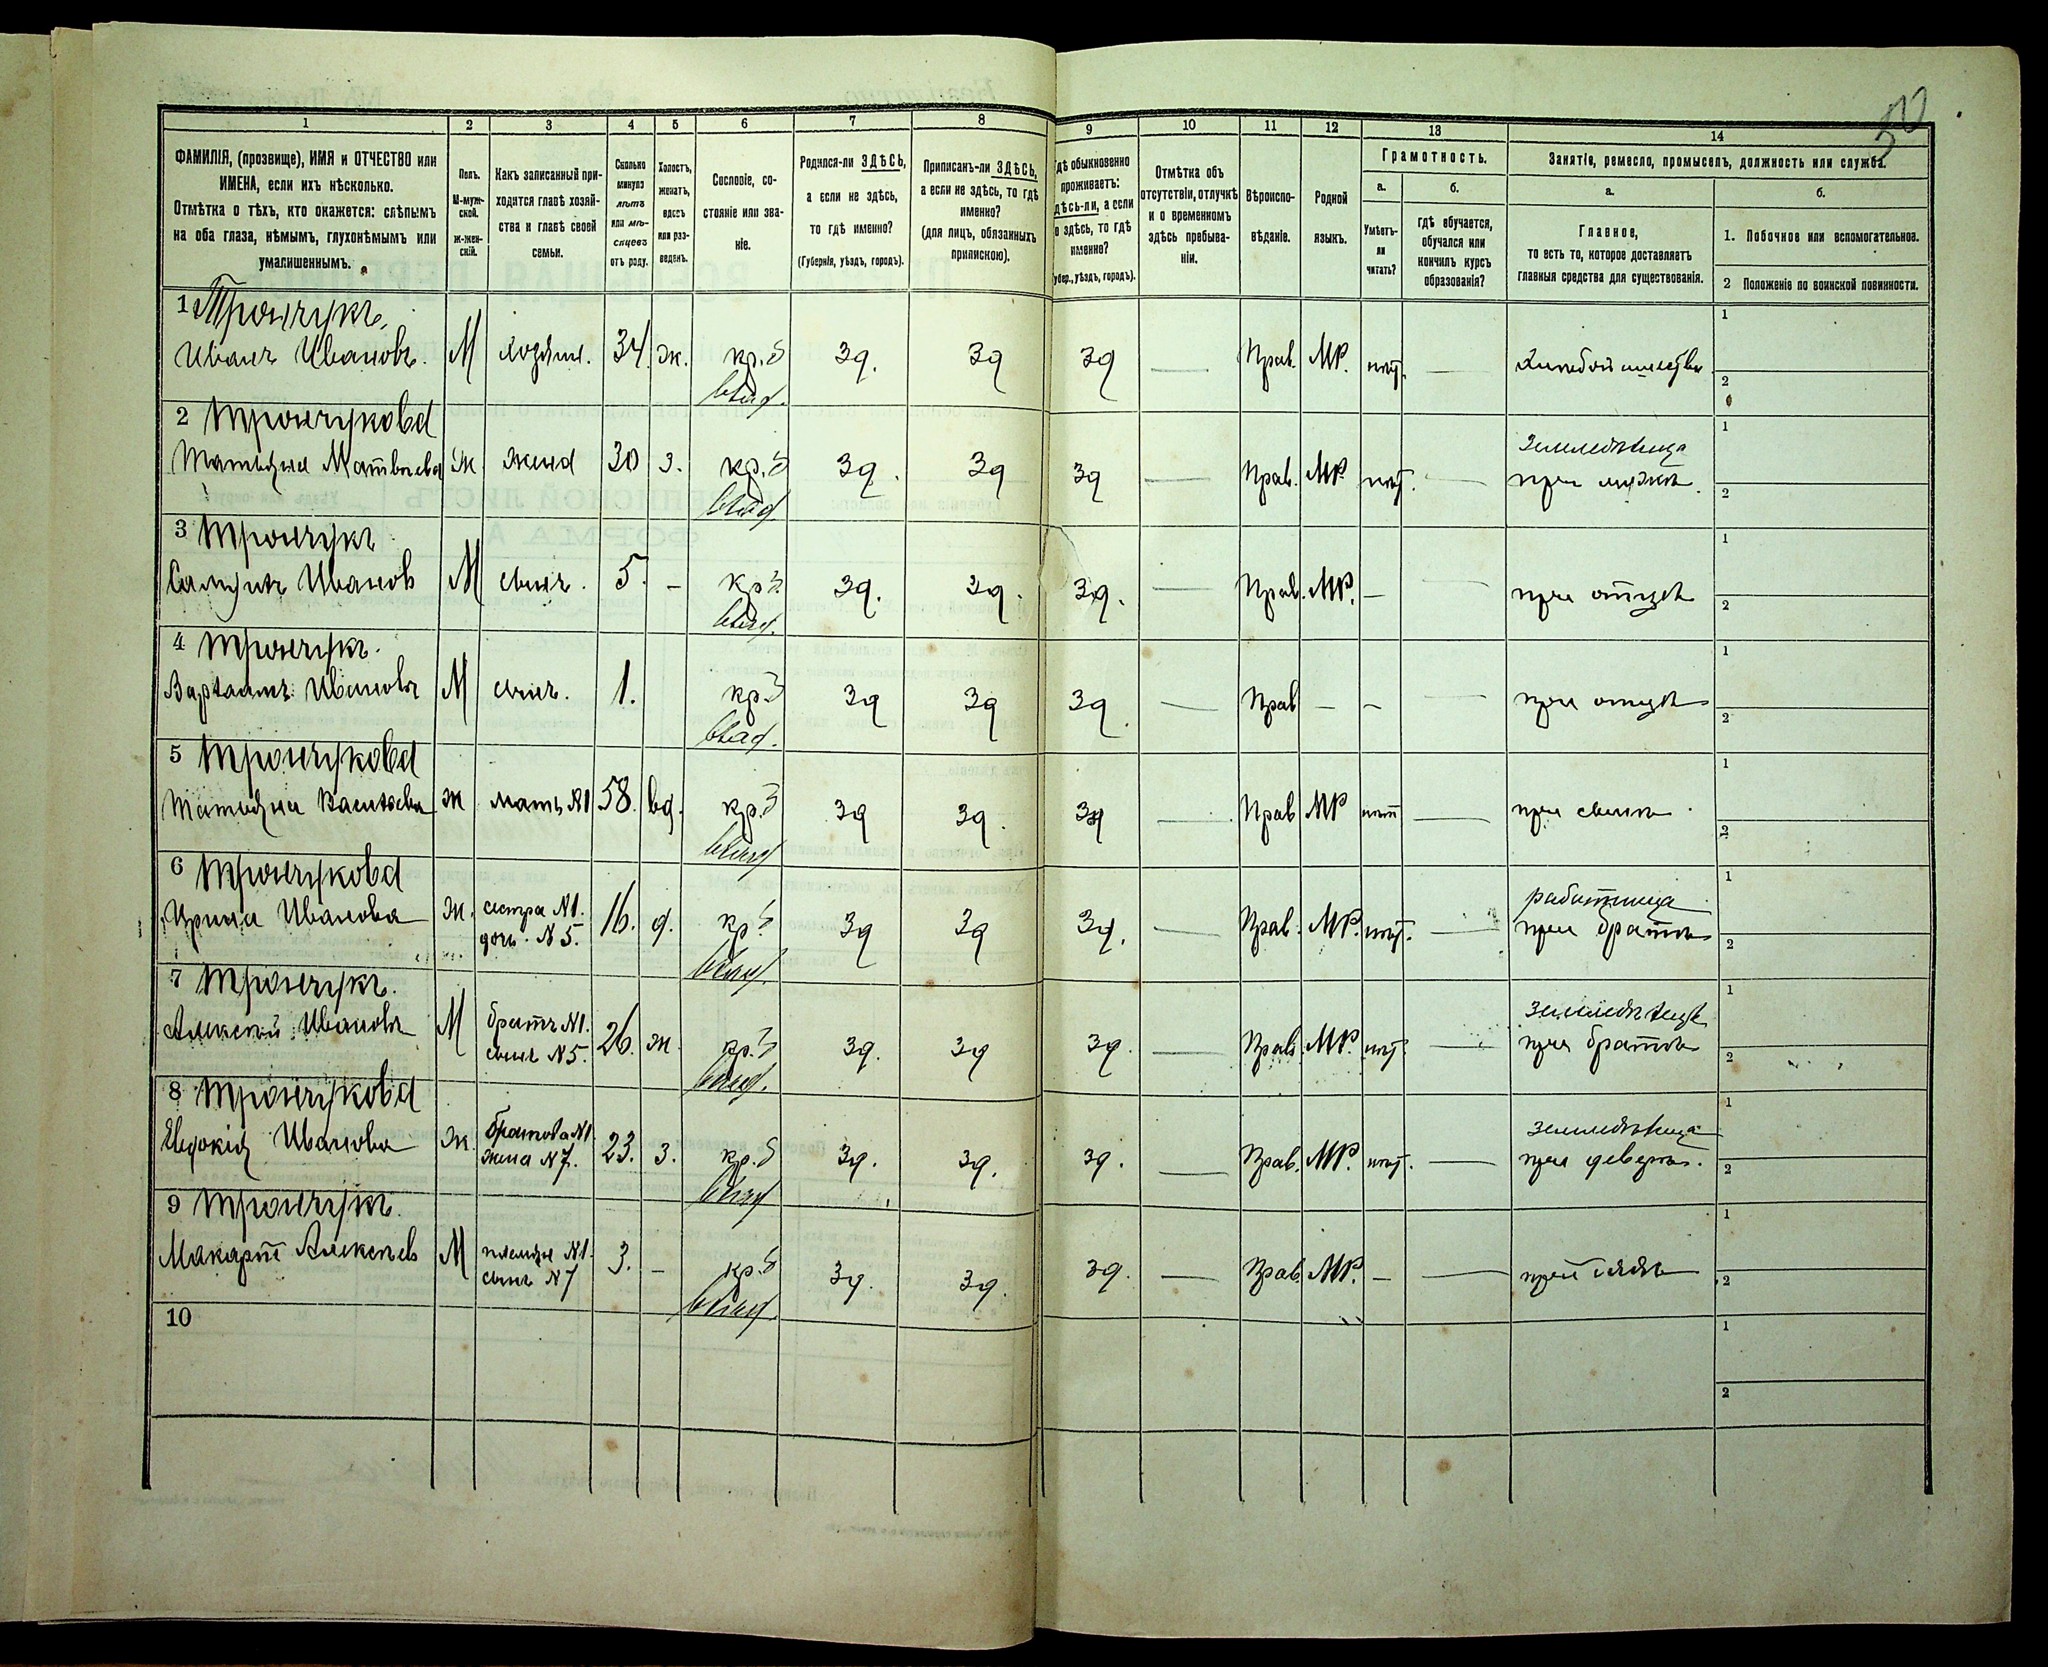 50
1 2 3 4 5 6 7 8 9 10 11 12 13 14
ФАМИЛІЯ, (прозвище), ИМЯ и ОТЧЕСТВО или ИМЕНА, если ихъ нѣсколько.
Отмѣтка о тѣхъ, кто окажется: слѣпымъ на оба глаза, нѣмымъ, глухонѣмымъ или умалишеннымъ.
Полъ.
М-мужской.
ж-женскій.
Какъ записанный приходится главѣ хозяйства и главѣ своей семьи.
Сколько минуло лѣтъ или мѣсяцевъ отъ роду.
Холостъ, женатъ, вдовъ или разведенъ.
Сословіе, состояніе или званіе.
Родился-ли ЗДѢСЬ, а если не здѣсь, то гдѣ именно?
(Губернія, уѣздъ, городъ).
Приписанъ-ли ЗДѢСЬ, а если не здѣсь, то гдѣ именно?
(для лицъ, обязанныхъ припискою).
обыкновенно проживаетъ:
а если
здѣсь, то гдѣ именно?
уѣздъ, городъ).
Отмѣтка объ отсутствіи, отлучкѣ и о временномъ здѣсь пребываніи.
Вѣроисповѣданіе.
Родной языкъ.
Грамотность.
а. б.
Умѣетъ-ли читать?
гдѣ обучается, обучался или кончилъ курсъ образованія?
Занятіе, ремесло, промыселъ, должность или служба.
а. б.
Главное,
то есть то, которое доставляетъ главныя средства для существованія.
1. Побочное или вспомогательное.
2 Положеніе по воинской повинности.
1 Трончукъ
Иванъ Ивановъ. М хозяин. 34. ж. кр. зд. зд зд — Прав. МР. нѣт. — 1
2
2 Трончукова
Татьяна Матвѣева ж. жена 30 з. кр. зд. зд зд — Прав. МР. нѣт. — при мужѣ. 1
2
3 Трончукъ
Иванов М сынъ. 5. – кр. зд. зд. зд. — Прав. МР. — — при отцѣ 1
2
4 Трончукъ.
Варлаамъ Ивановъ М сынъ. 1. кр. зд зд зд. — Прав – – — при отцѣ 1
2
5 Трончукова
Татьяна ж мать N1 58. вд. кр. зд зд. зд — Прав МР нѣт — при сынѣ. 1
2
6 Трончукова
Ирина Иванова ж. сестра N1. дочь. N5. 16. д. кр. зд зд зд. — Прав. МР. нѣт. — работница при братѣ 1
2
7 Трончукъ.
Алексѣй Ивановъ М братъ N1. сынъ N5. 26. ж. кр. зд. зд зд. — Прав. МР. нѣт — при братѣ 1
2
8 Трончукова
Евдокія Иванова ж. братова N1 жена N7. 23. з. кр. зд. зд. зд. — Прав. МР. нѣт. — при деверѣ. 1
2
9 Трончукъ.
Макарій Алексѣев М N1. сынъ N7 3. – кр. зд. зд. зд. — Прав МР. – — при дядѣ 1
2
10 1
2